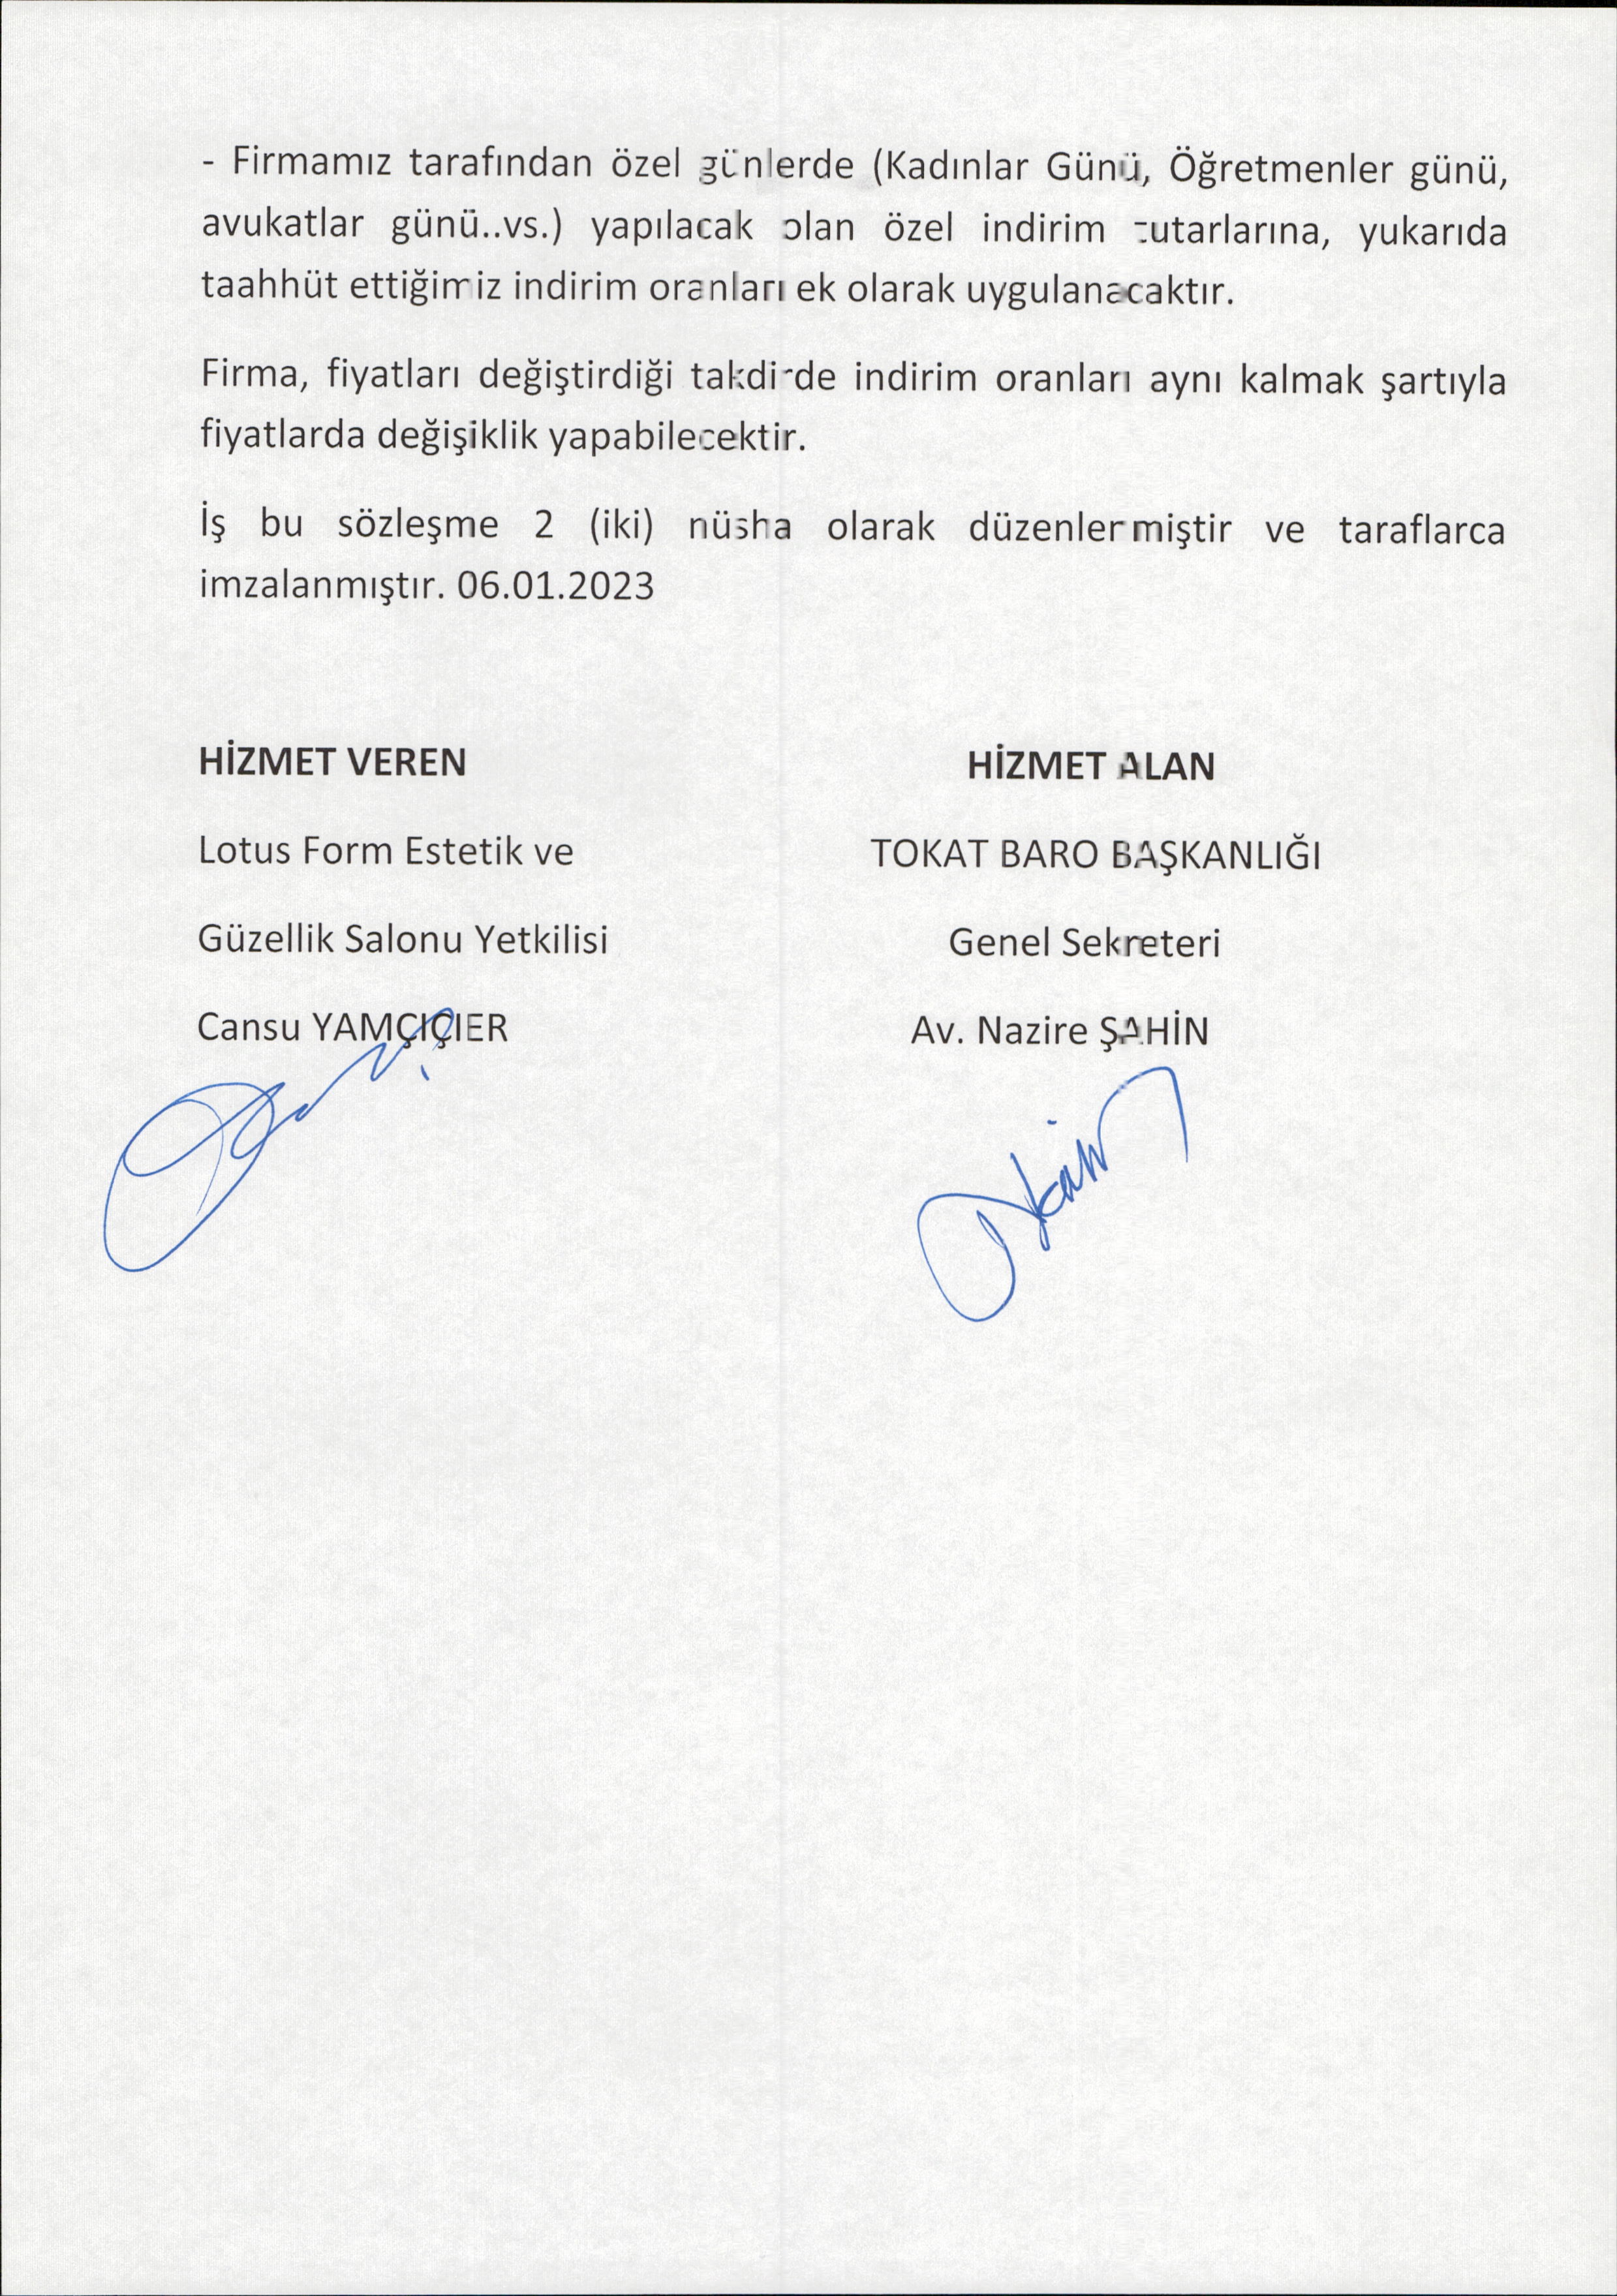 - Firmamız tarafından özel günlerde (Kadınlar Günü, Öğretmenler günü,
avukatlar günü..vs.) yapılacak olan özel indirim tutarlarına, yukarıda
taahhüt ettiğimiz indirim oranları ek olarak uygulanacaktır.
Firma, fiyatları değiştirdiği takdirde indirim oranları aynı kalmak şartıyla
fiyatlarda değişiklik yapabilecektir.
İş bu sözleşme 2 (iki) nüsha olarak düzenlenmiştir ve taraflarca
imzalanmıştır. 06.01.2023
HİZMET VEREN
Lotus Form Estetik ve
Güzellik Salonu Yetkilisi
Cansu YAMÇIÇIER
HİZMET ALAN
TOKAT BARO BAŞKANLIĞI
Genel Sekreteri
Av. Nazire ŞAHİN